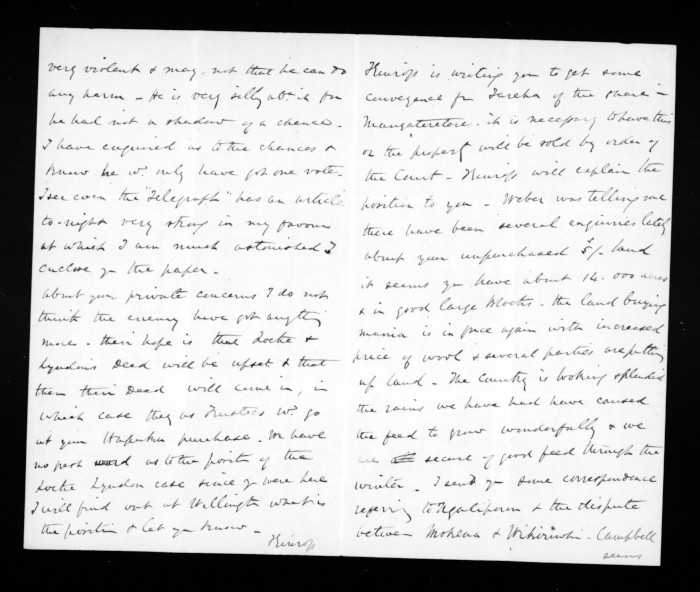 very violent & mag. not that he can do
any harm - He is very silly abt. it for
he had not a shadow of a chance -
I have enquired as to the chances &
know he wd. only have got one vote -
I see even the "Telegraph" has an article
to-night very strong in my favour
at which I am much astonished I
enclose you the paper -
About your private concerns I do not
think the enemy have got anything
more - their hope is that Locke &
Lyndon's Deed will be upset & that
then their Deed will come in, in
which case they as Trustees wd. go
at your purchase. We have
no fresh word as to the positn of the
Locke Lyndon case since you were here
I will find out at Wellington what is
the position & let you know -
Kinross
Kinross is writing you to get some
conveyance fm Tareha of the shares in
Mangateretere. it is necessary to have this
or the property will be sold by order of
the Court - Kinross will explain the
position to you - Weber was telling me
there have been several enquiries lately
about your unpurchased 5/- land
it seems you have about 14.000 acres
& in good large blocks - the land buying
mania is in force again with increased
price of wool & several parties are putting
up land - The Country is looking splendid
the rains we have had have caused
the feed to grow wonderfully & we
are secure of good feed through the
winter - I send you some correspondence
referring to & the dispute
between Mohena & - Campbell
seems